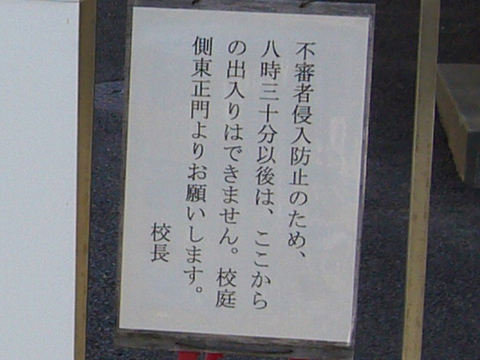 不審者侵入防止のため、
八時三十分以後は、ここから
の出入りはできません。校庭
側東正門よりお願いします。
校長